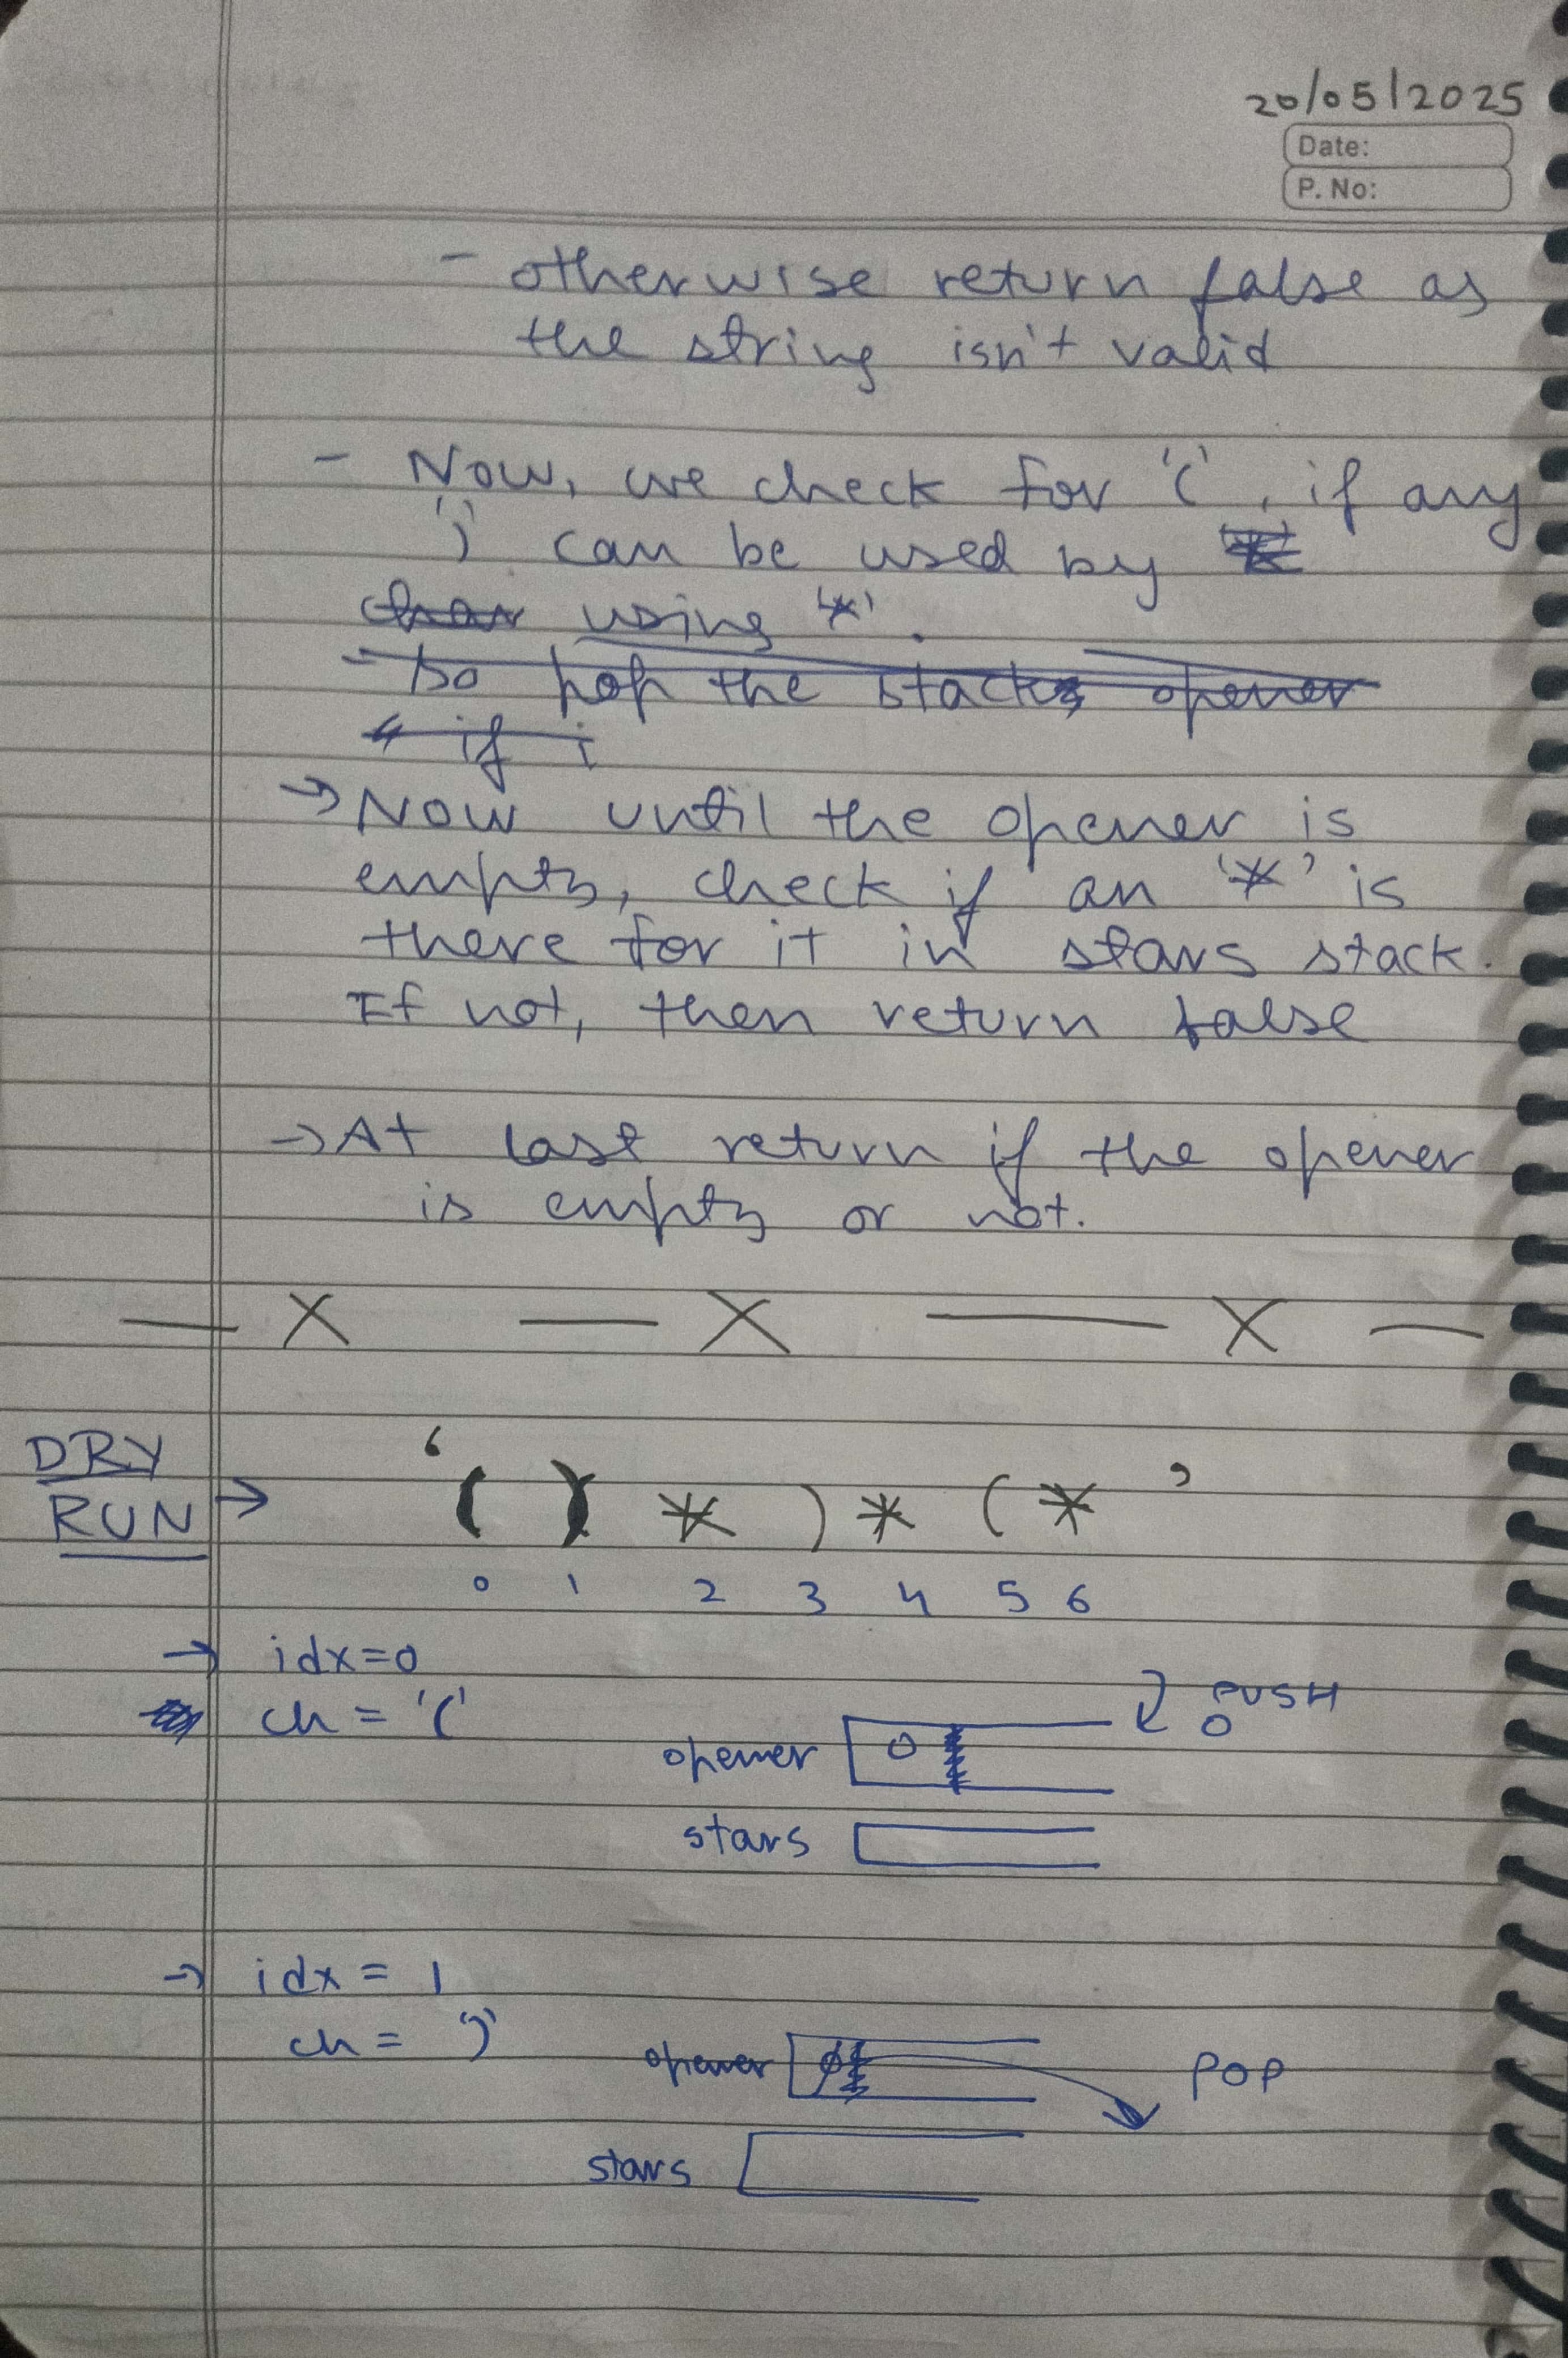 20/05/2025
Date:
P. No:
- otherwise return false as
the string isn't valid
- Now, we check for '(', if any
')' can be used by
char using '*'.
- so pop the stack opener
if i
→ Now until the opener is
empty, check if an '*' is
there for it in stars stack.
If not, then return false
→ At last return if the opener
is empty or not.
— X — X — X —
DRY
RUN → '( ) * ) * ( *'
0 1 2 3 4 5 6
→ idx=0
ch = '('
PUSH
0
opener 0
stars
→ idx = 1
ch = ')'
opener 0
POP
stars